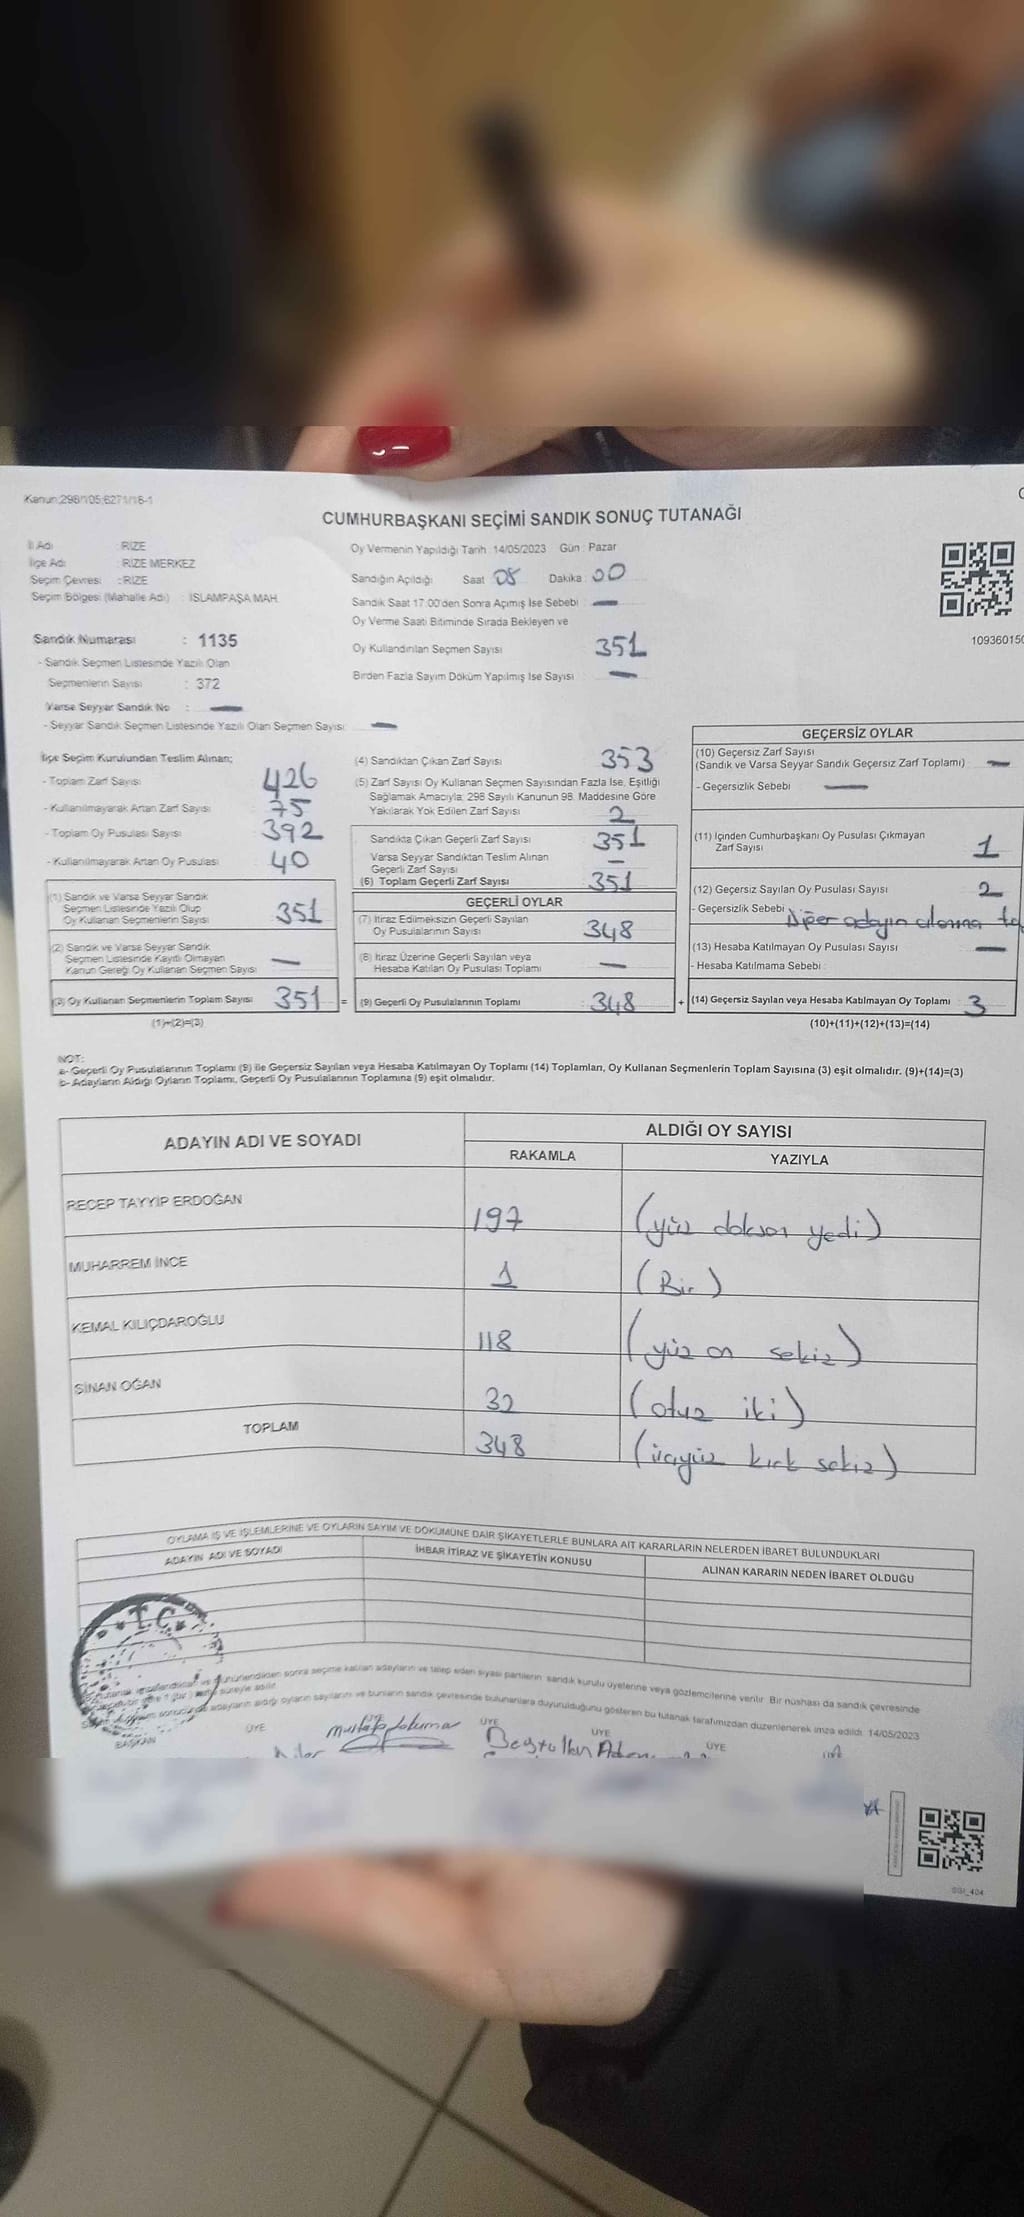 Kanun:298/105;6271/16-1
CUMHURBAŞKANI SEÇİMİ SANDIK SONUÇ TUTANAĞI
İl Adı : RİZE
İlçe Adı : RİZE MERKEZ
Seçim Çevresi : RİZE
Seçim Bölgesi (Mahalle Adı) : İSLAMPAŞA MAH.
Sandık Numarası : 1135
- Sandık Seçmen Listesinde Yazılı Olan
Seçmenlerin Sayısı : 372
Varsa Seyyar Sandık No : —
- Seyyar Sandık Seçmen Listesinde Yazılı Olan Seçmen Sayısı: —
Oy Vermenin Yapıldığı Tarih: 14/05/2023 Gün : Pazar
Sandığın Açıldığı Saat 08 Dakika : 00
Sandık Saat 17.00'den Sonra Açılmış İse Sebebi : —
Oy Verme Saati Bitiminde Sırada Bekleyen ve
Oy Kullandırılan Seçmen Sayısı 351
Birden Fazla Sayım Döküm Yapılmış İse Sayısı : —
109360150
İlçe Seçim Kurulundan Teslim Alınan;
- Toplam Zarf Sayısı : 426
- Kullanılmayarak Artan Zarf Sayısı : 75
- Toplam Oy Pusulası Sayısı : 392
- Kullanılmayarak Artan Oy Pusulası : 40
(1) Sandık ve Varsa Seyyar Sandık
Seçmen Listesinde Yazılı Olup
Oy Kullanan Seçmenlerin Sayısı : 351
(2) Sandık ve Varsa Seyyar Sandık
Seçmen Listesinde Kayıtlı Olmayan
Kanun Gereği Oy Kullanan Seçmen Sayısı : —
(3) Oy Kullanan Seçmenlerin Toplam Sayısı : 351 =
(1)+(2)=(3)
(4) Sandıktan Çıkan Zarf Sayısı 353
(5) Zarf Sayısı Oy Kullanan Seçmen Sayısından Fazla İse, Eşitliği
Sağlamak Amacıyla, 298 Sayılı Kanunun 98. Maddesine Göre
Yakılarak Yok Edilen Zarf Sayısı : 2
Sandıkta Çıkan Geçerli Zarf Sayısı : 351
Varsa Seyyar Sandıktan Teslim Alınan
Geçerli Zarf Sayısı : —
(6) Toplam Geçerli Zarf Sayısı : 351
GEÇERLİ OYLAR
(7) İtiraz Edilmeksizin Geçerli Sayılan
Oy Pusulalarının Sayısı : 348
(8) İtiraz Üzerine Geçerli Sayılan veya
Hesaba Katılan Oy Pusulası Toplamı : —
(9) Geçerli Oy Pusulalarının Toplamı : 348 +
GEÇERSİZ OYLAR
(10) Geçersiz Zarf Sayısı
(Sandık ve Varsa Seyyar Sandık Geçersiz Zarf Toplamı) : —
- Geçersizlik Sebebi : —
(11) İçinden Cumhurbaşkanı Oy Pusulası Çıkmayan
Zarf Sayısı : 1
(12) Geçersiz Sayılan Oy Pusulası Sayısı : 2
- Geçersizlik Sebebi : Diğer adayın alanına ta
(13) Hesaba Katılmayan Oy Pusulası Sayısı : —
- Hesaba Katılmama Sebebi :
(14) Geçersiz Sayılan veya Hesaba Katılmayan Oy Toplamı : 3
(10)+(11)+(12)+(13)=(14)
NOT:
a- Geçerli Oy Pusulalarının Toplamı (9) ile Geçersiz Sayılan veya Hesaba Katılmayan Oy Toplamı (14) Toplamları, Oy Kullanan Seçmenlerin Toplam Sayısına (3) eşit olmalıdır. (9)+(14)=(3)
b- Adayların Aldığı Oyların Toplamı, Geçerli Oy Pusulalarının Toplamına (9) eşit olmalıdır.
ADAYIN ADI VE SOYADI ALDIĞI OY SAYISI
RAKAMLA YAZIYLA
RECEP TAYYİP ERDOĞAN 197 (yüz doksan yedi)
MUHARREM İNCE 1 (Bir)
KEMAL KILIÇDAROĞLU 118 (yüz on sekiz)
SİNAN OĞAN 32 (otuz iki)
TOPLAM 348 (üçyüz kırk sekiz)
OYLAMA İŞ VE İŞLEMLERİNE VE OYLARIN SAYIM VE DÖKÜMÜNE DAİR ŞİKAYETLERLE BUNLARA AİT KARARLARIN NELERDEN İBARET BULUNDUKLARI
ADAYIN ADI VE SOYADI İHBAR İTİRAZ VE ŞİKAYETİN KONUSU ALINAN KARARIN NEDEN İBARET OLDUĞU
T.C.
seçime katılan adayların ve talep eden siyasi partilerin sandık kurulu üyelerine veya gözlemcilerine verilir. Bir nüshası da sandık çevresinde
süreyle asılır.
adayların aldığı oyların sayılarını ve bunların sandık çevresinde bulunanlara duyurulduğunu gösteren bu tutanak tarafımızdan düzenlenerek imza edildi. 14/05/2023
BAŞKAN ÜYE ÜYE ÜYE ÜYE ÜYE
SGI_404